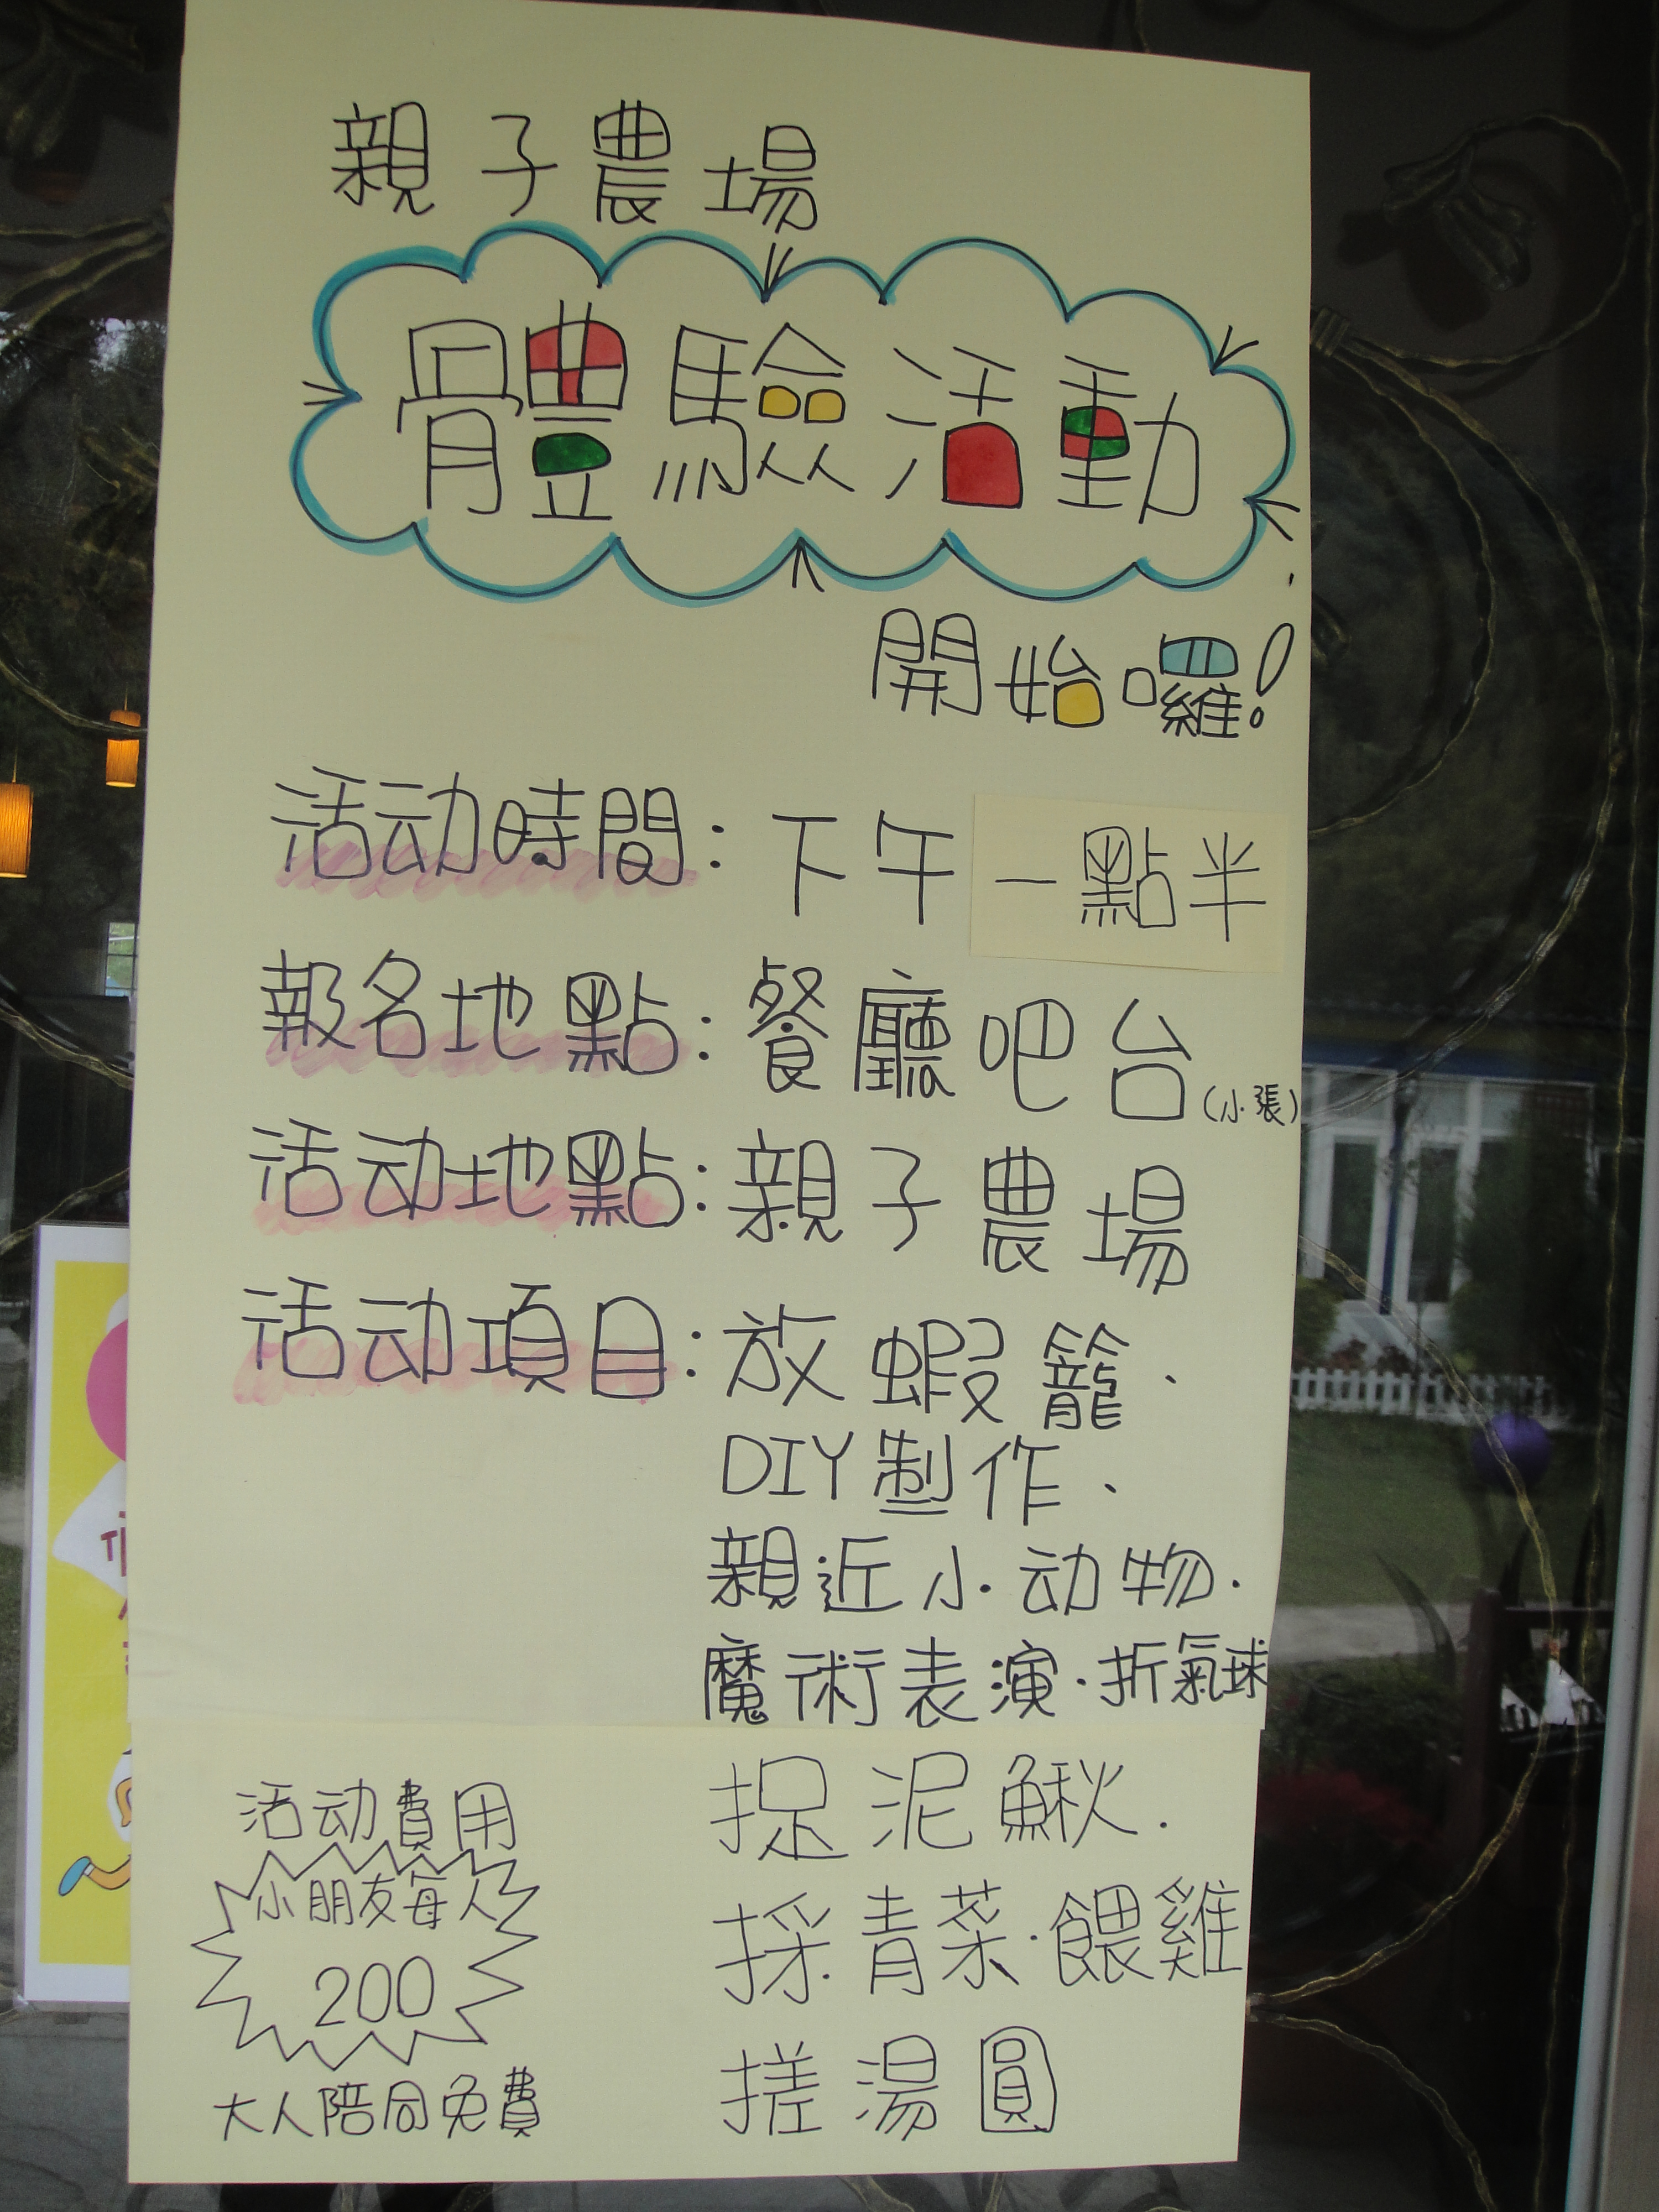 親子農場
體驗活動
開始囉!
活动時間:下午一點半
報名地點:餐廳吧台(小張)
活动地點:親子農場
活动項目:放蝦籠、
DIY製作、
親近小动物.
魔術表演.折氣球
捉泥鰍.
採青菜.餵雞
搓湯圓
活动費用
小朋友每人
200
大人陪同免費